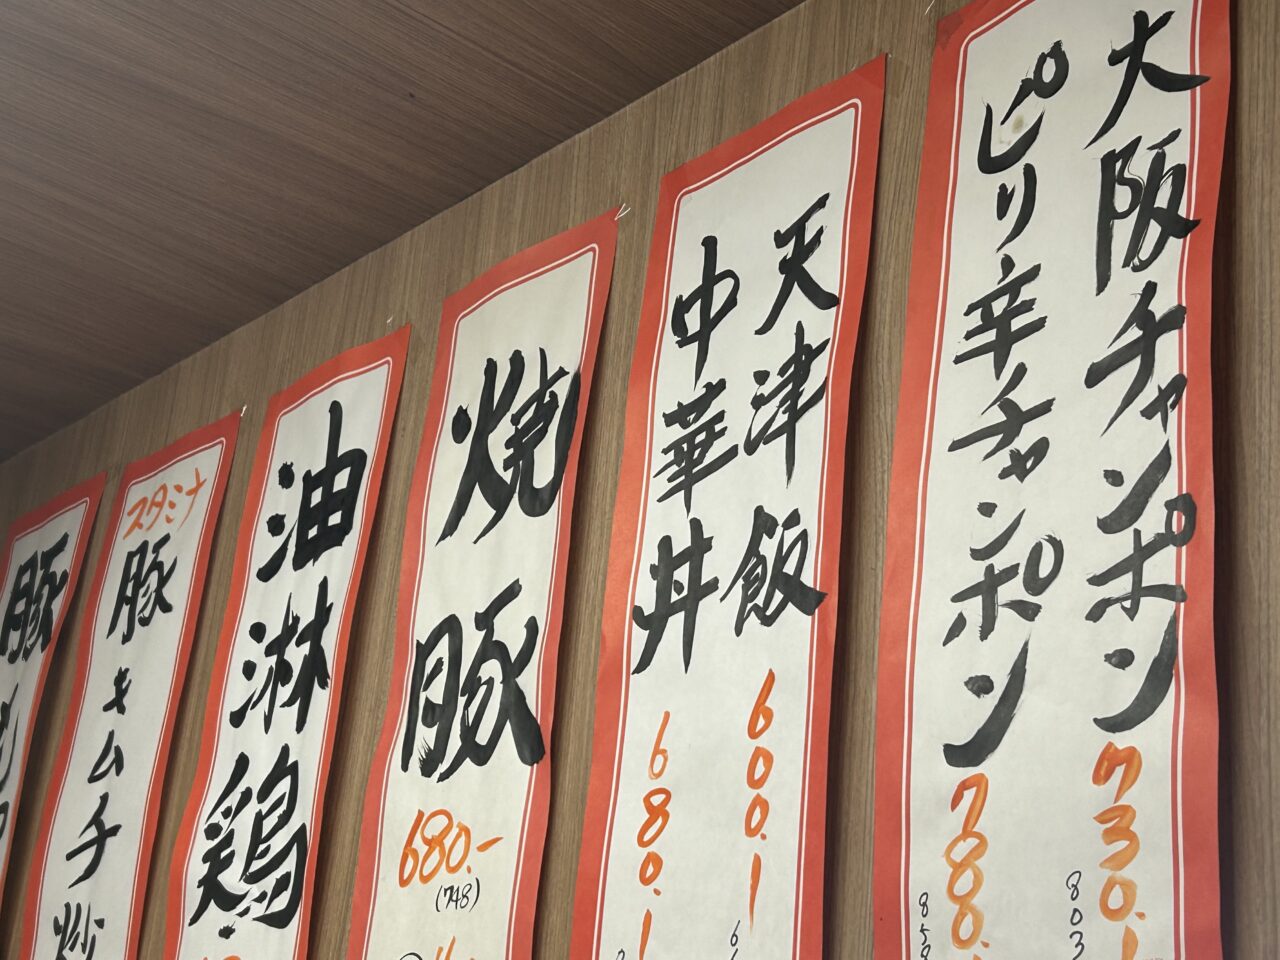 大阪チャンポン
730.-
803
ピリ辛チャンポン
780.
858
天津飯
600.-
中華丼
680.-
焼豚
680.-
(748)
油淋鶏
スタミナ
豚キムチ炒
豚